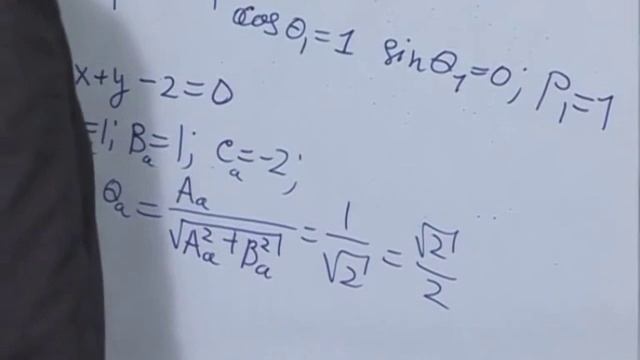 cosθ₁=1 sinθ₁=0; P₁=1
x+y-2=0
=1; Bₐ=1; Cₐ=-2;
θₐ = Aₐ/√(Aₐ²+Bₐ²) = 1/√2 = √2/2